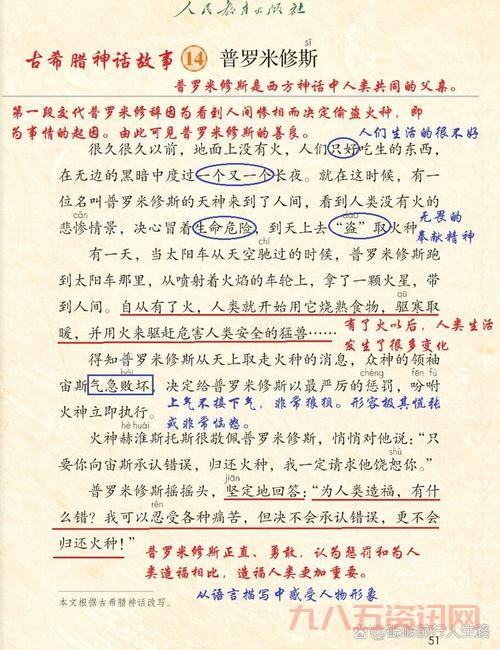 人民教育出版社
古希腊神话故事 14 普罗米修斯
sī
普罗米修斯是西方神话中人类共同的父亲。
第一段交代普罗米修斯辞因为看到人间惨相而决定偷盗火种，即
为事情的起因。由此可见普罗米修斯的善良。
人们生活的很不好
很久很久以前，地面上没有火，人们只好吃生的东西，
在无边的黑暗中度过一个又一个长夜。就在这时候，有一
位名叫普罗米修斯的天神来到了人间，看到人类没有火的
cǎn
悲惨情景，决心冒着生命危险，到天上去“盗”取火种。
dào
无畏的
奉献精神
chí
有一天，当太阳车从天空驰过的时候，普罗米修斯跑
到太阳车那里，从喷射着火焰的车轮上，拿了一颗火星，带
qū
到人间。自从有了火，人类就开始用它烧熟食物，驱寒取
暖，并用火来驱赶危害人类安全的猛兽……
有了火以后，人类生活
发生了很多变化
得知普罗米修斯从天上取走火种的消息，众神的领袖
bài chéng fēn fù
宙斯气急败坏，决定给普罗米修斯以最严厉的惩罚，吩咐
火神立即执行。
上气不接下气，非常狼狈。形容极其慌张
或非常恼怒。
hè huái ráo
火神赫淮斯托斯很敬佩普罗米修斯，悄悄对他说：“只
要你向宙斯承认错误，归还火种，我一定请求他饶恕你。”
jiān
普罗米修斯摇摇头，坚定地回答：“为人类造福，有什
rěn
么错？我可以忍受各种痛苦，但决不会承认错误，更不会
归还火种！”
普罗米修斯正直、勇敢，认为惩罚和为人
类造福相比，造福人类更加重要。
本文根据古希腊神话改写。
从语言描写中感受人物形象
九八五资讯网
51